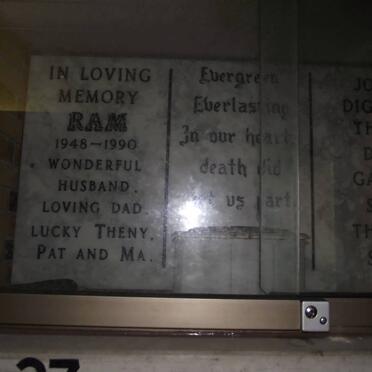 IN LOVING
MEMORY
RAM
1948-1990
WONDERFUL
HUSBAND.
LOVING DAD
LUCKY THENY.
PAT AND MA.
Evergreen
Everlasting
In our hearts
death did
not us part
JO
DIG
TH
D
GA
S
TH
S
27